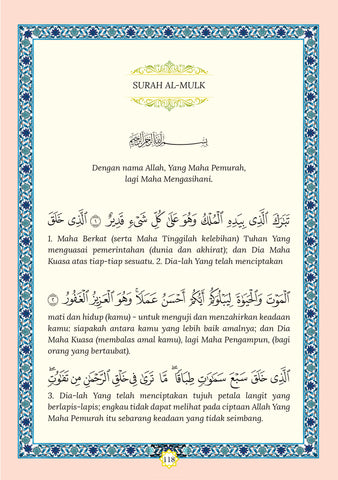 SURAH AL-MULK
بِسْمِ اللَّهِ الرَّحْمَٰنِ الرَّحِيمِ
Dengan nama Allah, Yang Maha Pemurah,
lagi Maha Mengasihani.
تَبَٰرَكَ الَّذِي بِيَدِهِ الْمُلْكُ وَهُوَ عَلَىٰ كُلِّ شَيْءٍ قَدِيرٌ ١ الَّذِي خَلَقَ
1. Maha Berkat (serta Maha Tinggilah kelebihan) Tuhan Yang
menguasai pemerintahan (dunia dan akhirat); dan Dia Maha
Kuasa atas tiap-tiap sesuatu. 2. Dia-lah Yang telah menciptakan
الْمَوْتَ وَالْحَيَوٰةَ لِيَبْلُوَكُمْ أَيُّكُمْ أَحْسَنُ عَمَلًا ۚ وَهُوَ الْعَزِيزُ الْغَفُورُ ٢
mati dan hidup (kamu) - untuk menguji dan menzahirkan keadaan
kamu; siapakah antara kamu yang lebih baik amalnya; dan Dia
Maha Kuasa (membalas amal kamu), lagi Maha Pengampun, (bagi
orang yang bertaubat).
الَّذِي خَلَقَ سَبْعَ سَمَٰوَٰتٍ طِبَاقًا ۖ مَّا تَرَىٰ فِي خَلْقِ الرَّحْمَٰنِ مِن تَفَٰوُتٍ ۖ
3. Dia-lah Yang telah menciptakan tujuh petala langit yang
berlapis-lapis; engkau tidak dapat melihat pada ciptaan Allah Yang
Maha Pemurah itu sebarang keadaan yang tidak seimbang.
118